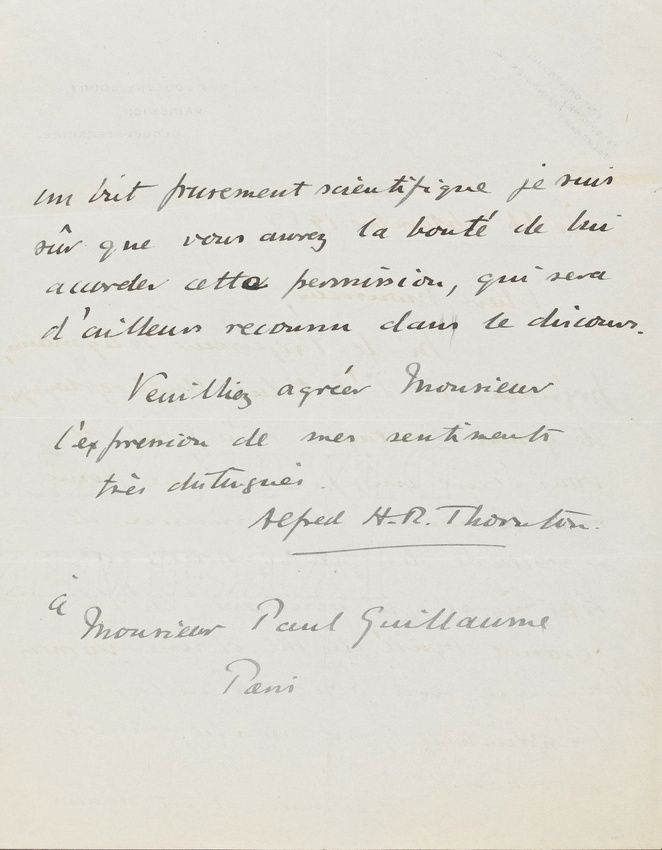 un but purement scientifique je suis
sûr que vous aurez la bonté de lui
accorder cette permission, qui sera
d'ailleurs reconnu dans le discours.
Veuilliez agréer Monsieur
l'expression de mes sentiments
très distugués.
Alfred H.R. Thornton.
à
Monsieur Paul Guillaume
Paris